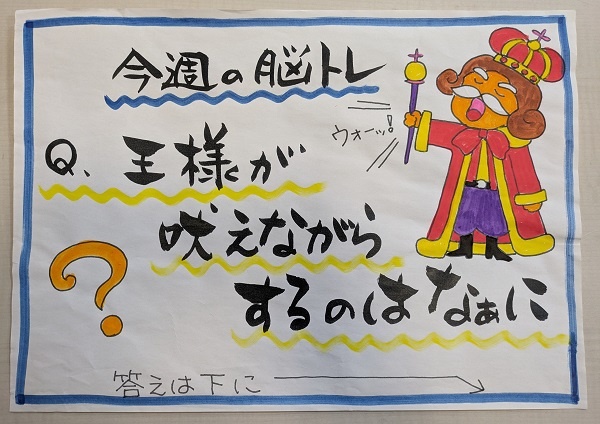 今週の脳トレ
ウォーッ!
Q、王様が
吠えながら
するのはなぁに
?
答えは下に